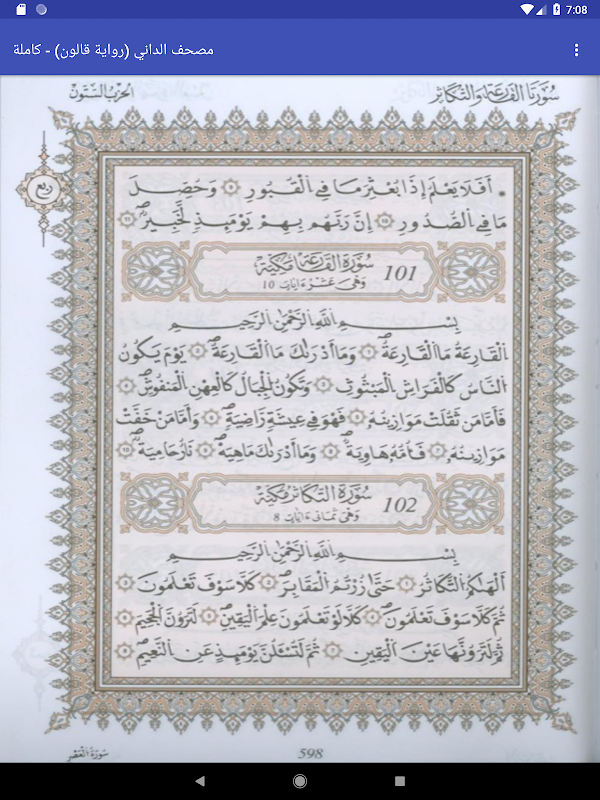 7:08
مصحف الداني (رواية قالون) - كاملة
سورتا القارعة والتكاثر
الحزب الستون
ربع
أَفَلَا يَعْلَمُ إِذَا بُعْثِرَ مَا فِي الْقُبُورِ ۝ وَحُصِّلَ
مَا فِي الصُّدُورِ ۝ إِنَّ رَبَّهُم بِهِمْ يَوْمَئِذٍ لَّخَبِيرٌ ۝
101 سُورَةُ الْقَارِعَةِ مَكِّيَّة
وَهْيَ عَشْرُ ءَايَات 10
بِسْمِ اللَّهِ الرَّحْمَٰنِ الرَّحِيمِ
الْقَارِعَةُ مَا الْقَارِعَةُ ۝ وَمَا أَدْرَىٰكَ مَا الْقَارِعَةُ ۝ يَوْمَ يَكُونُ
النَّاسُ كَالْفَرَاشِ الْمَبْثُوثِ ۝ وَتَكُونُ الْجِبَالُ كَالْعِهْنِ الْمَنفُوشِ ۝
فَأَمَّا مَن ثَقُلَتْ مَوَازِينُهُ ۝ فَهْوَ فِي عِيشَةٍ رَّاضِيَةٍ ۝ وَأَمَّا مَنْ خَفَّتْ
مَوَازِينُهُ ۝ فَأُمُّهُ هَاوِيَةٌ ۝ وَمَا أَدْرَىٰكَ مَا هِيَهْ ۝ نَارٌ حَامِيَةٌ ۝
102 سُورَةُ التَّكَاثُرِ مَكِّيَّة
وَهْيَ ثَمَانِي ءَايَات 8
بِسْمِ اللَّهِ الرَّحْمَٰنِ الرَّحِيمِ
أَلْهَىٰكُمُ التَّكَاثُرُ ۝ حَتَّىٰ زُرْتُمُ الْمَقَابِرَ ۝ كَلَّا سَوْفَ تَعْلَمُونَ ۝
ثُمَّ كَلَّا سَوْفَ تَعْلَمُونَ ۝ كَلَّا لَوْ تَعْلَمُونَ عِلْمَ الْيَقِينِ ۝ لَتَرَوُنَّ الْجَحِيمَ ۝
ثُمَّ لَتَرَوُنَّهَا عَيْنَ الْيَقِينِ ۝ ثُمَّ لَتُسْـَٔلُنَّ يَوْمَئِذٍ عَنِ النَّعِيمِ ۝
598
سورة العصر